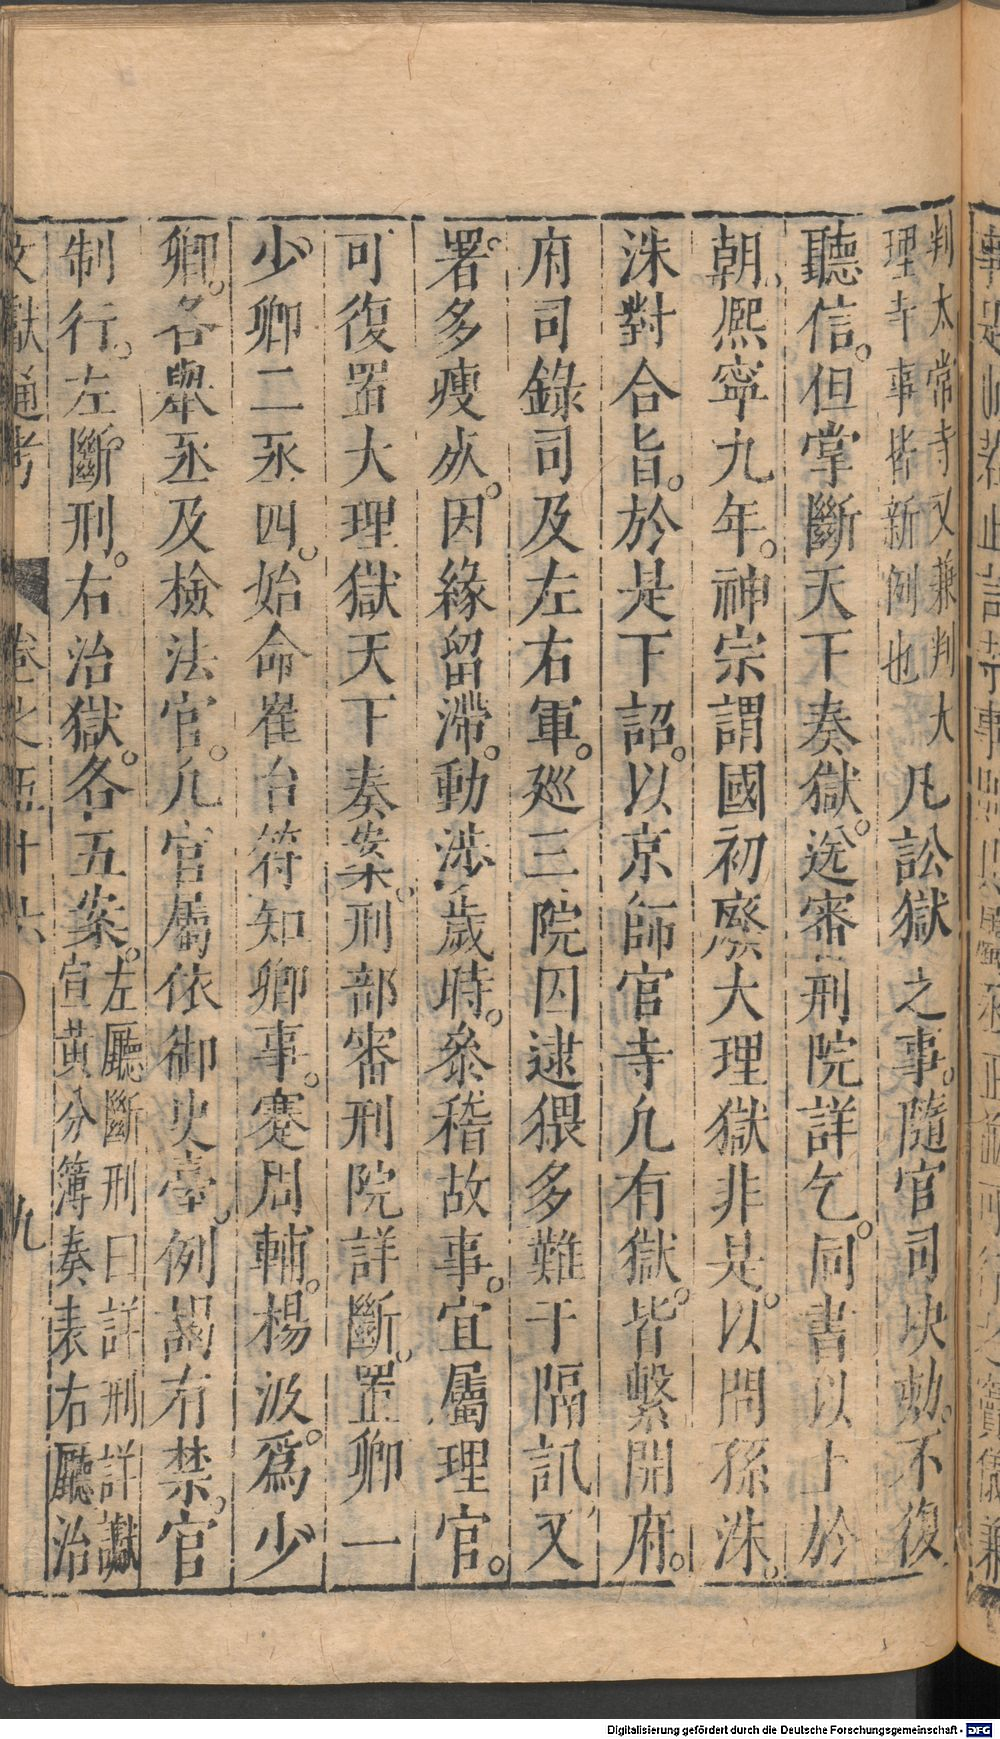 判太常寺又兼判大
理寺事皆新例也
凡訟獄之事。隨官司决劾。不復
聽信。但掌斷天下奏獄。送審刑院詳乞。同書以上於
朝。熙寧九年。神宗謂國初廢大理獄非是。以問孫洙。
洙對合旨。於是下詔。以京師官寺凢有獄。皆繫開府。
府司錄司及左右軍。廵三院囚逮猥多難于隔訊又
署。多瘦𣦸。因緣留滯。動渉歲時。叅稽故事。宜屬理官。
可復置大理獄天下奏案。刑部審刑院詳斷。置卿一
少。卿二丞四。始命崔台符知卿事。蹇周輔。楊汲。爲少
卿。各舉丞及檢法官。凢官屬依御史臺。例謁有禁。官
制行。左斷刑。右治獄。各五案。
左廳斷刑曰詳刑詳讞
宣黄分簿奏表右廳治
文獻通考
卷之五十六
九
Digitalisierung gefördert durch die Deutsche Forschungsgemeinschaft - DFG